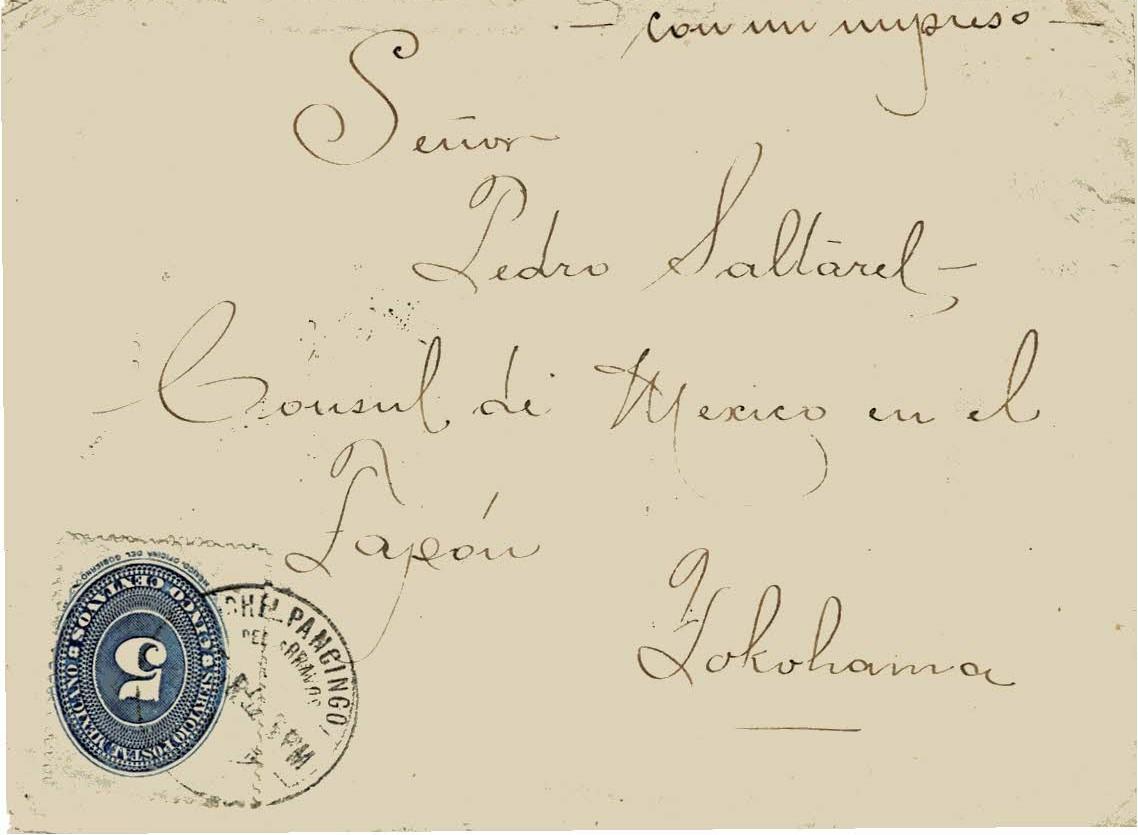 — con un impreso —
Señor
Pedro Saltárel —
— Consul de Mexico en el
Japón
Yokohama
MEXICO. OFICINA DEL GOBIERNO
SERVICIO POSTAL MEXICANO
CINCO CENTAVOS
5
CHILPANCINGO
DEL BRAVOS
PM